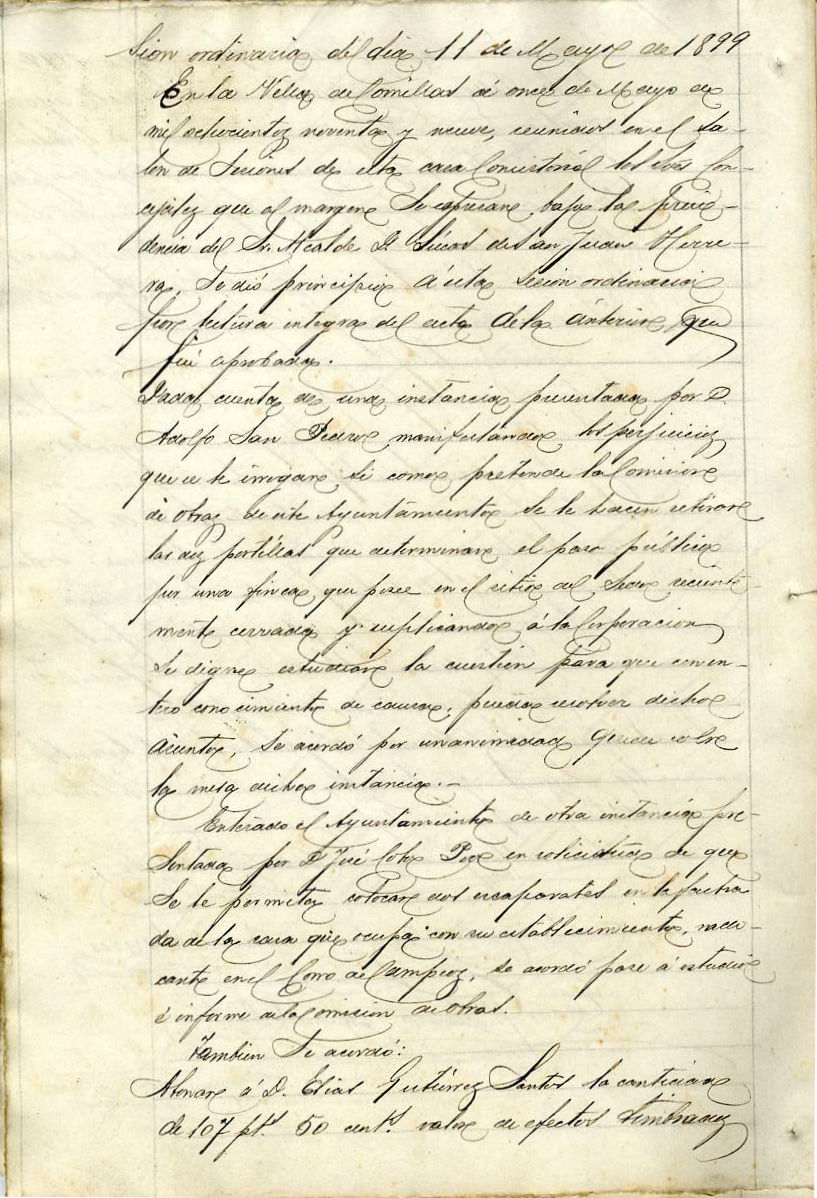 Sion ordinaria del dia 11 de Mayo de 1899
En la Villa de Comillas á once de Mayo de
mil ochocientos noventa y nueve, reunidos en el Sa-
lon de Sesiones de esta casa Consistorial los Sres Con-
cejales que al margen Se expresan, bajo la Presi-
dencia del Sr. Alcalde D. Lúcas de San Juan Herre-
ra, Se dió principio á esta Sesion ordinaria
por lectura integra del acta de la anterior que
fué aprobada.
Dada cuenta de una instancia presentada por D.
Adolfo San Pedro manifestando los perjuicios
que se le irrogan si como pretende la Comision
de Obras de este Ayuntamiento se le hacen retirar
las dos portillas que determinan el paso público
por una finca que posee en el sitio del recient-
mente cerrada y suplicando á la Corporacion
se digne estudiar la cuestión para que con en-
tero conocimiento de causa, pueda resolver dicho
asunto, se acordó por unanimidad quede sobre
la mesa dicha instancia.-
Enterado el Ayuntamiento de otra instancia pre-
sentada por D. José en solicitud de que
se le permita colocar dos escaparates en la facha
da de la casa que ocupa con su establecimiento, radi-
cante en el Corro de Campios, se acordó pase á estudio
é informe de la Comision de Obras.
Tambien Se acordó:
Abonar á D. Elias Gutiérrez Santos la cantidad
de 107 pts. 50 cents. valor de efectos timbrados